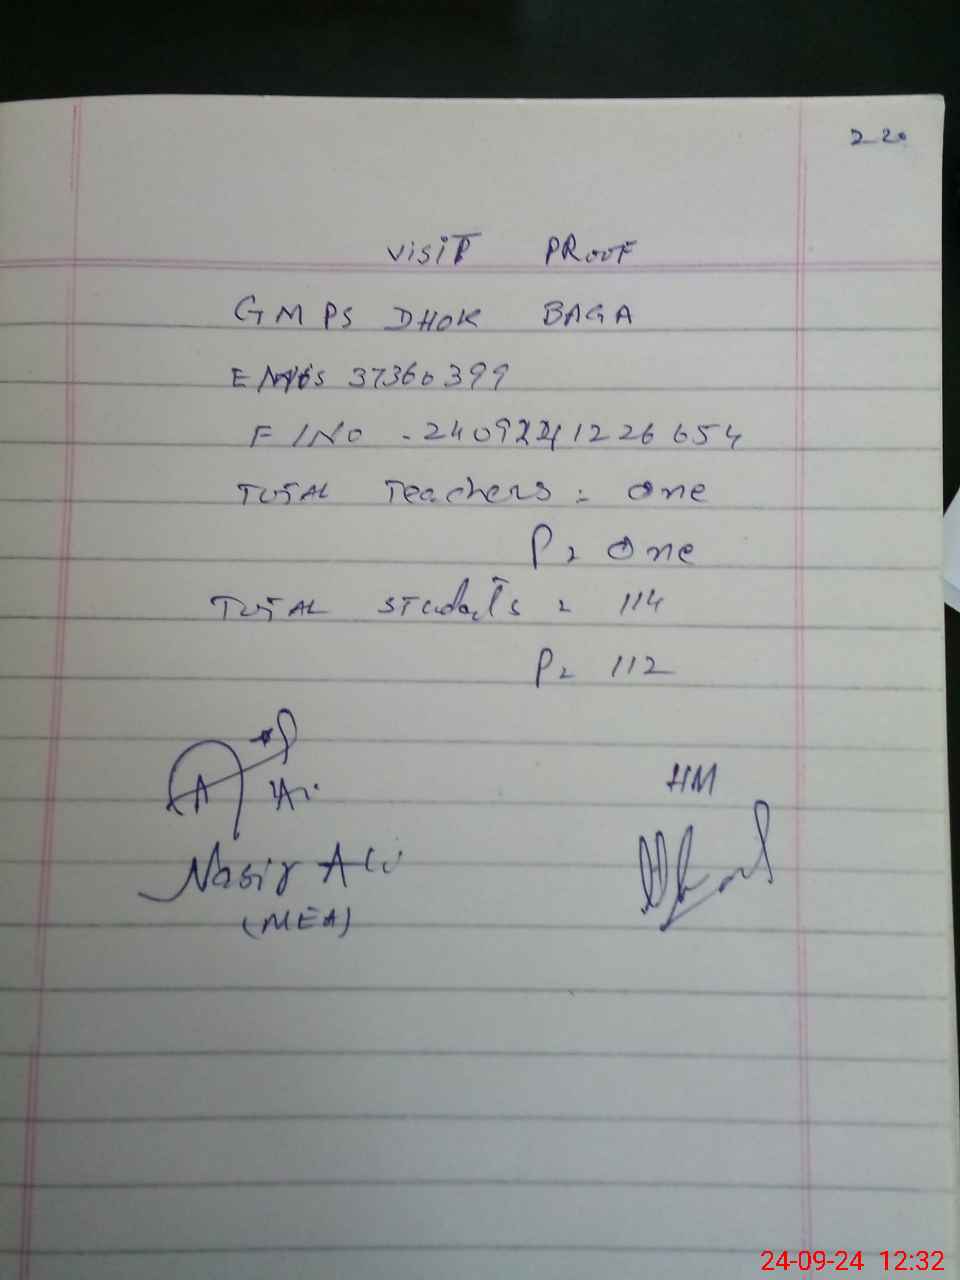 2-20
VISIT PROOF
GMPS DHOK BAGA
EMIS 37360399
F/NO - 2409241226654
TOTAL Teachers = one
P = one
TOTAL students = 114
P = 112
HM
Nasir Ali
(MEA)
24-09-24 12:32